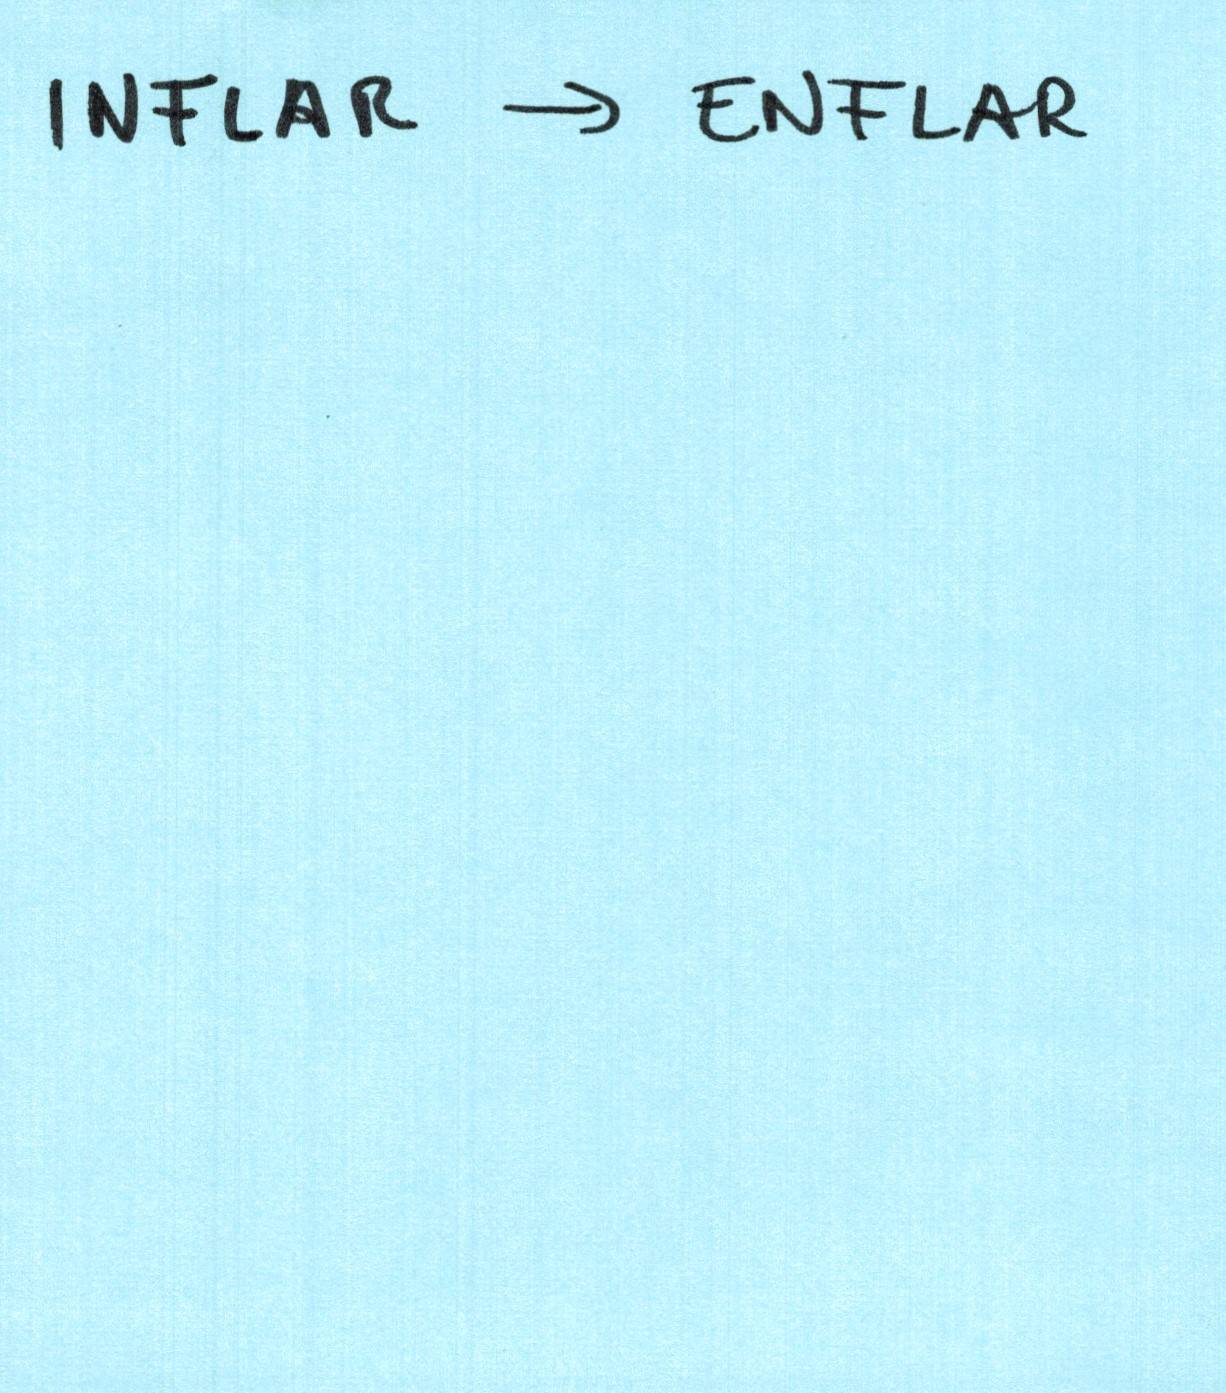 INFLAR → ENFLAR